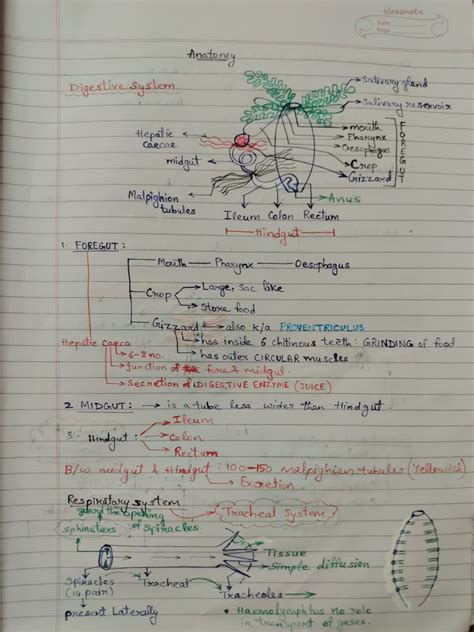 classmate
Date
Page
Anatomy
Digestive System
Salivary gland
Salivary reservoir
Hepatic caecae
midgut
Malpighion tubules
mouth
Pharynx
Oesophagus
Crop
Gizzard
FOREGUT
Anus
Ileum Colon Rectum
Hindgut
1. FOREGUT:
Mouth Pharynx Oesophagus
Crop
Large, sac like
Store food
Gizzard also k/a PROVENTRICULUS
has inside 6 chitinous teeth: GRINDING of food
has outer CIRCULAR muscles
Hepatic Caeca
6-8 no.
junction of fore & midgut
secretion of DIGESTIVE ENZYME (JUICE)
2 MIDGUT: is a tube less wider than Hindgut.
3. Hindgut:
Ileum
Colon
Rectum
B/w midgut & Hindgut: 100-150 malpighian tubules (Yellowish)
Excretion.
Respiratory system
Tracheat System
guard the opening of spiracles
sphincters
Tissue
Simple diffusion
Spiracles (10 pair)
Tracheat
Tracheoles
present Laterally
Haemolymph has no role in transport of gases.